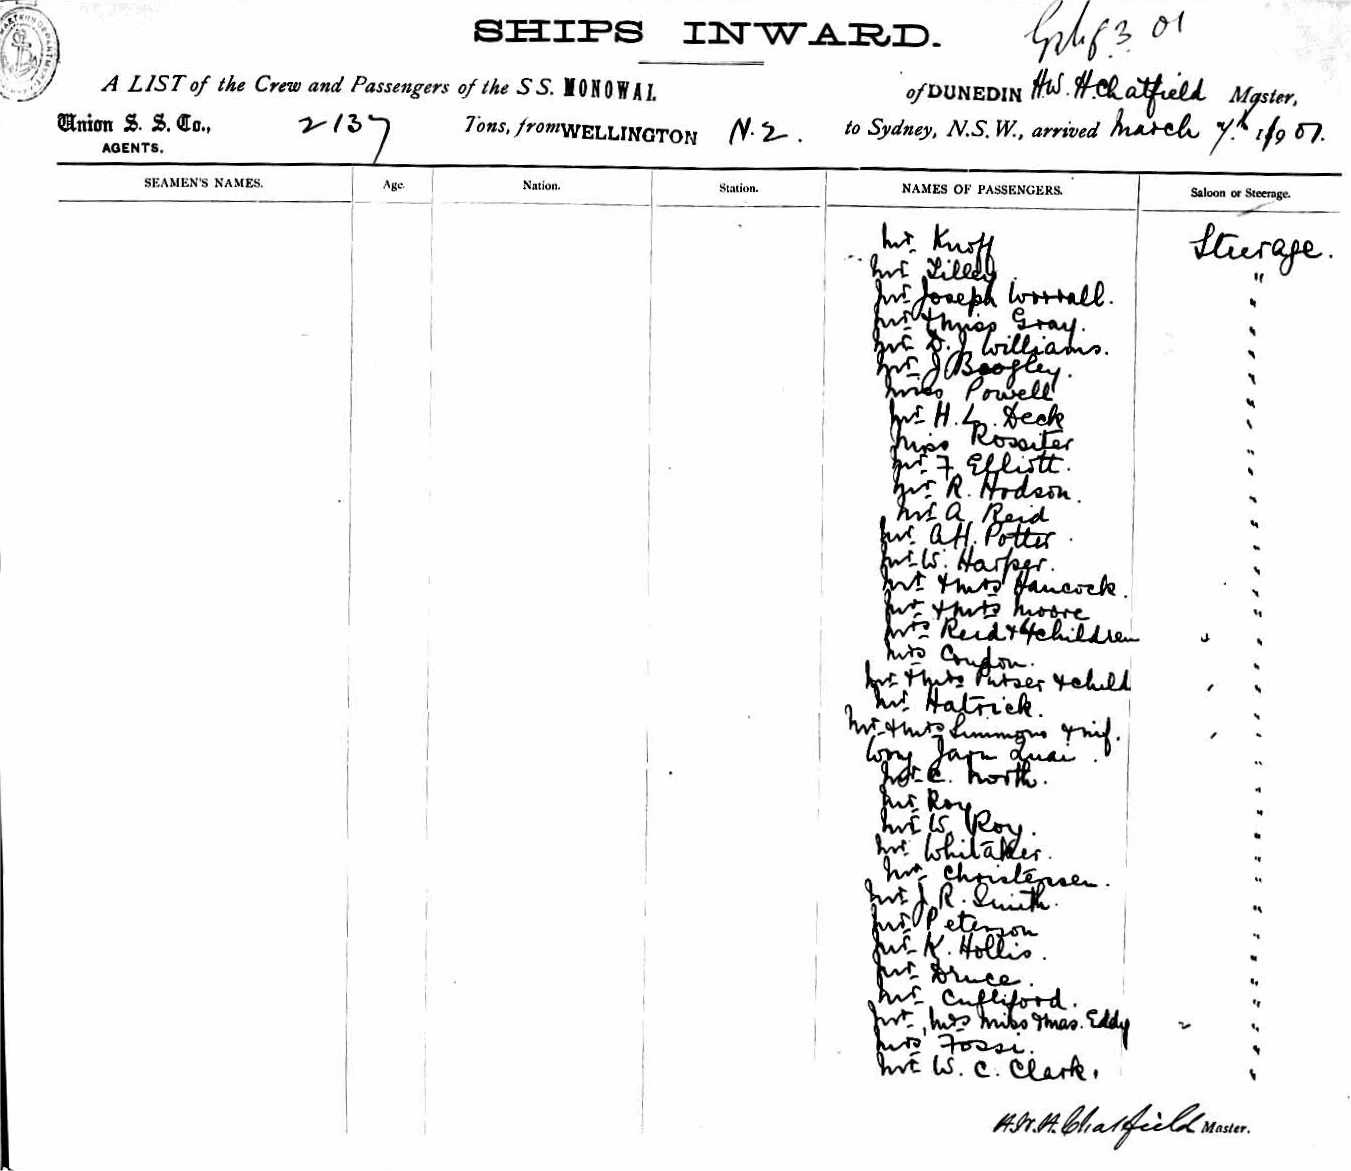 SHIPS INWARD.
A LIST of the Crew and Passengers of the S S. MONOWAI. of DUNEDIN H.W. H. Chatfield Master,
Union S. S. Co., 2137 Tons, from WELLINGTON N.Z. to Sydney, N.S.W., arrived March 7th 1901.
AGENTS.
SEAMEN'S NAMES. Age. Nation. Station. NAMES OF PASSENGERS. Saloon or Steerage.
Mr Knoff Steerage.
Mr Lilley "
Mr Joseph Worrall. "
Mr & Miss Gray. "
Mr D. J Williams. "
Mr J Beogley. "
Miss Powell "
Mr H. L. Deck "
Miss Rossiter "
Mr F Elliott. "
Mr R. Hodson. "
Mr A Reid "
Mr A H. Potter "
Mr W. Harper. "
Mr & Mrs Hancock. "
Mr & Mrs Moore "
Mrs Reid & 4 children "
Mrs Condon. "
Mr & Mrs Purser & child "
Mr Hatrick. "
Mr & Mrs Simmons & inf. "
Wong Quai "
Mr C. North. "
Mr Roy "
Mr W Roy. "
Mr Whitaker. "
Mr Christensen. "
Mr J R. Smith. "
Mr Peterson "
Mr K. Hollis. "
Mr Druce. "
Mr Culliford. "
Mr, Mrs Miss & Mas. Eddy "
Mrs Fossi. "
Mr W. C. Clark. "
H.W.H. Chatfield Master.